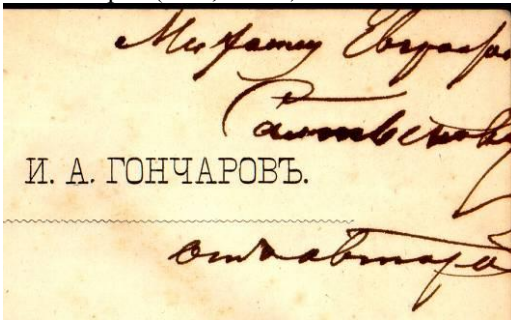 Михаилу Евграфо
Салтыкову
И. А. ГОНЧАРОВЪ.
отъ автора